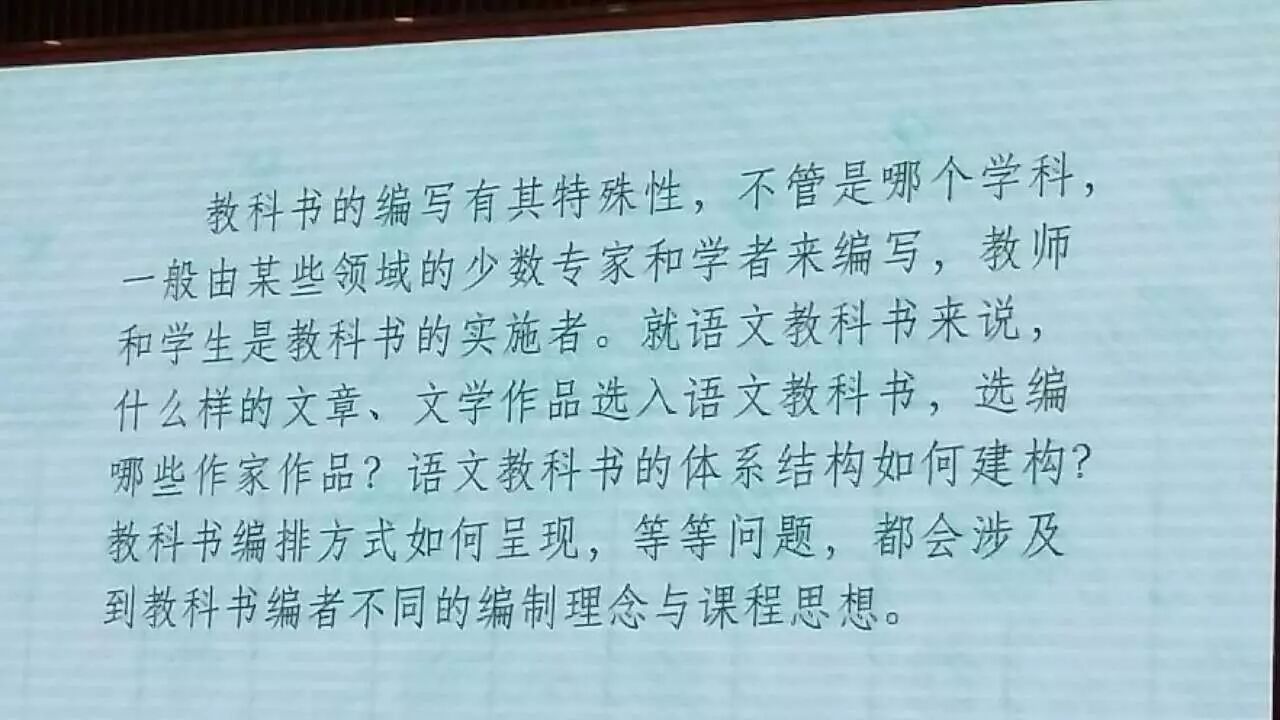 教科书的编写有其特殊性，不管是哪个学科，
一般由某些领域的少数专家和学者来编写，教师
和学生是教科书的实施者。就语文教科书来说，
什么样的文章、文学作品选入语文教科书，选编
哪些作家作品？语文教科书的体系结构如何建构？
教科书编排方式如何呈现，等等问题，都会涉及
到教科书编者不同的编制理念与课程思想。